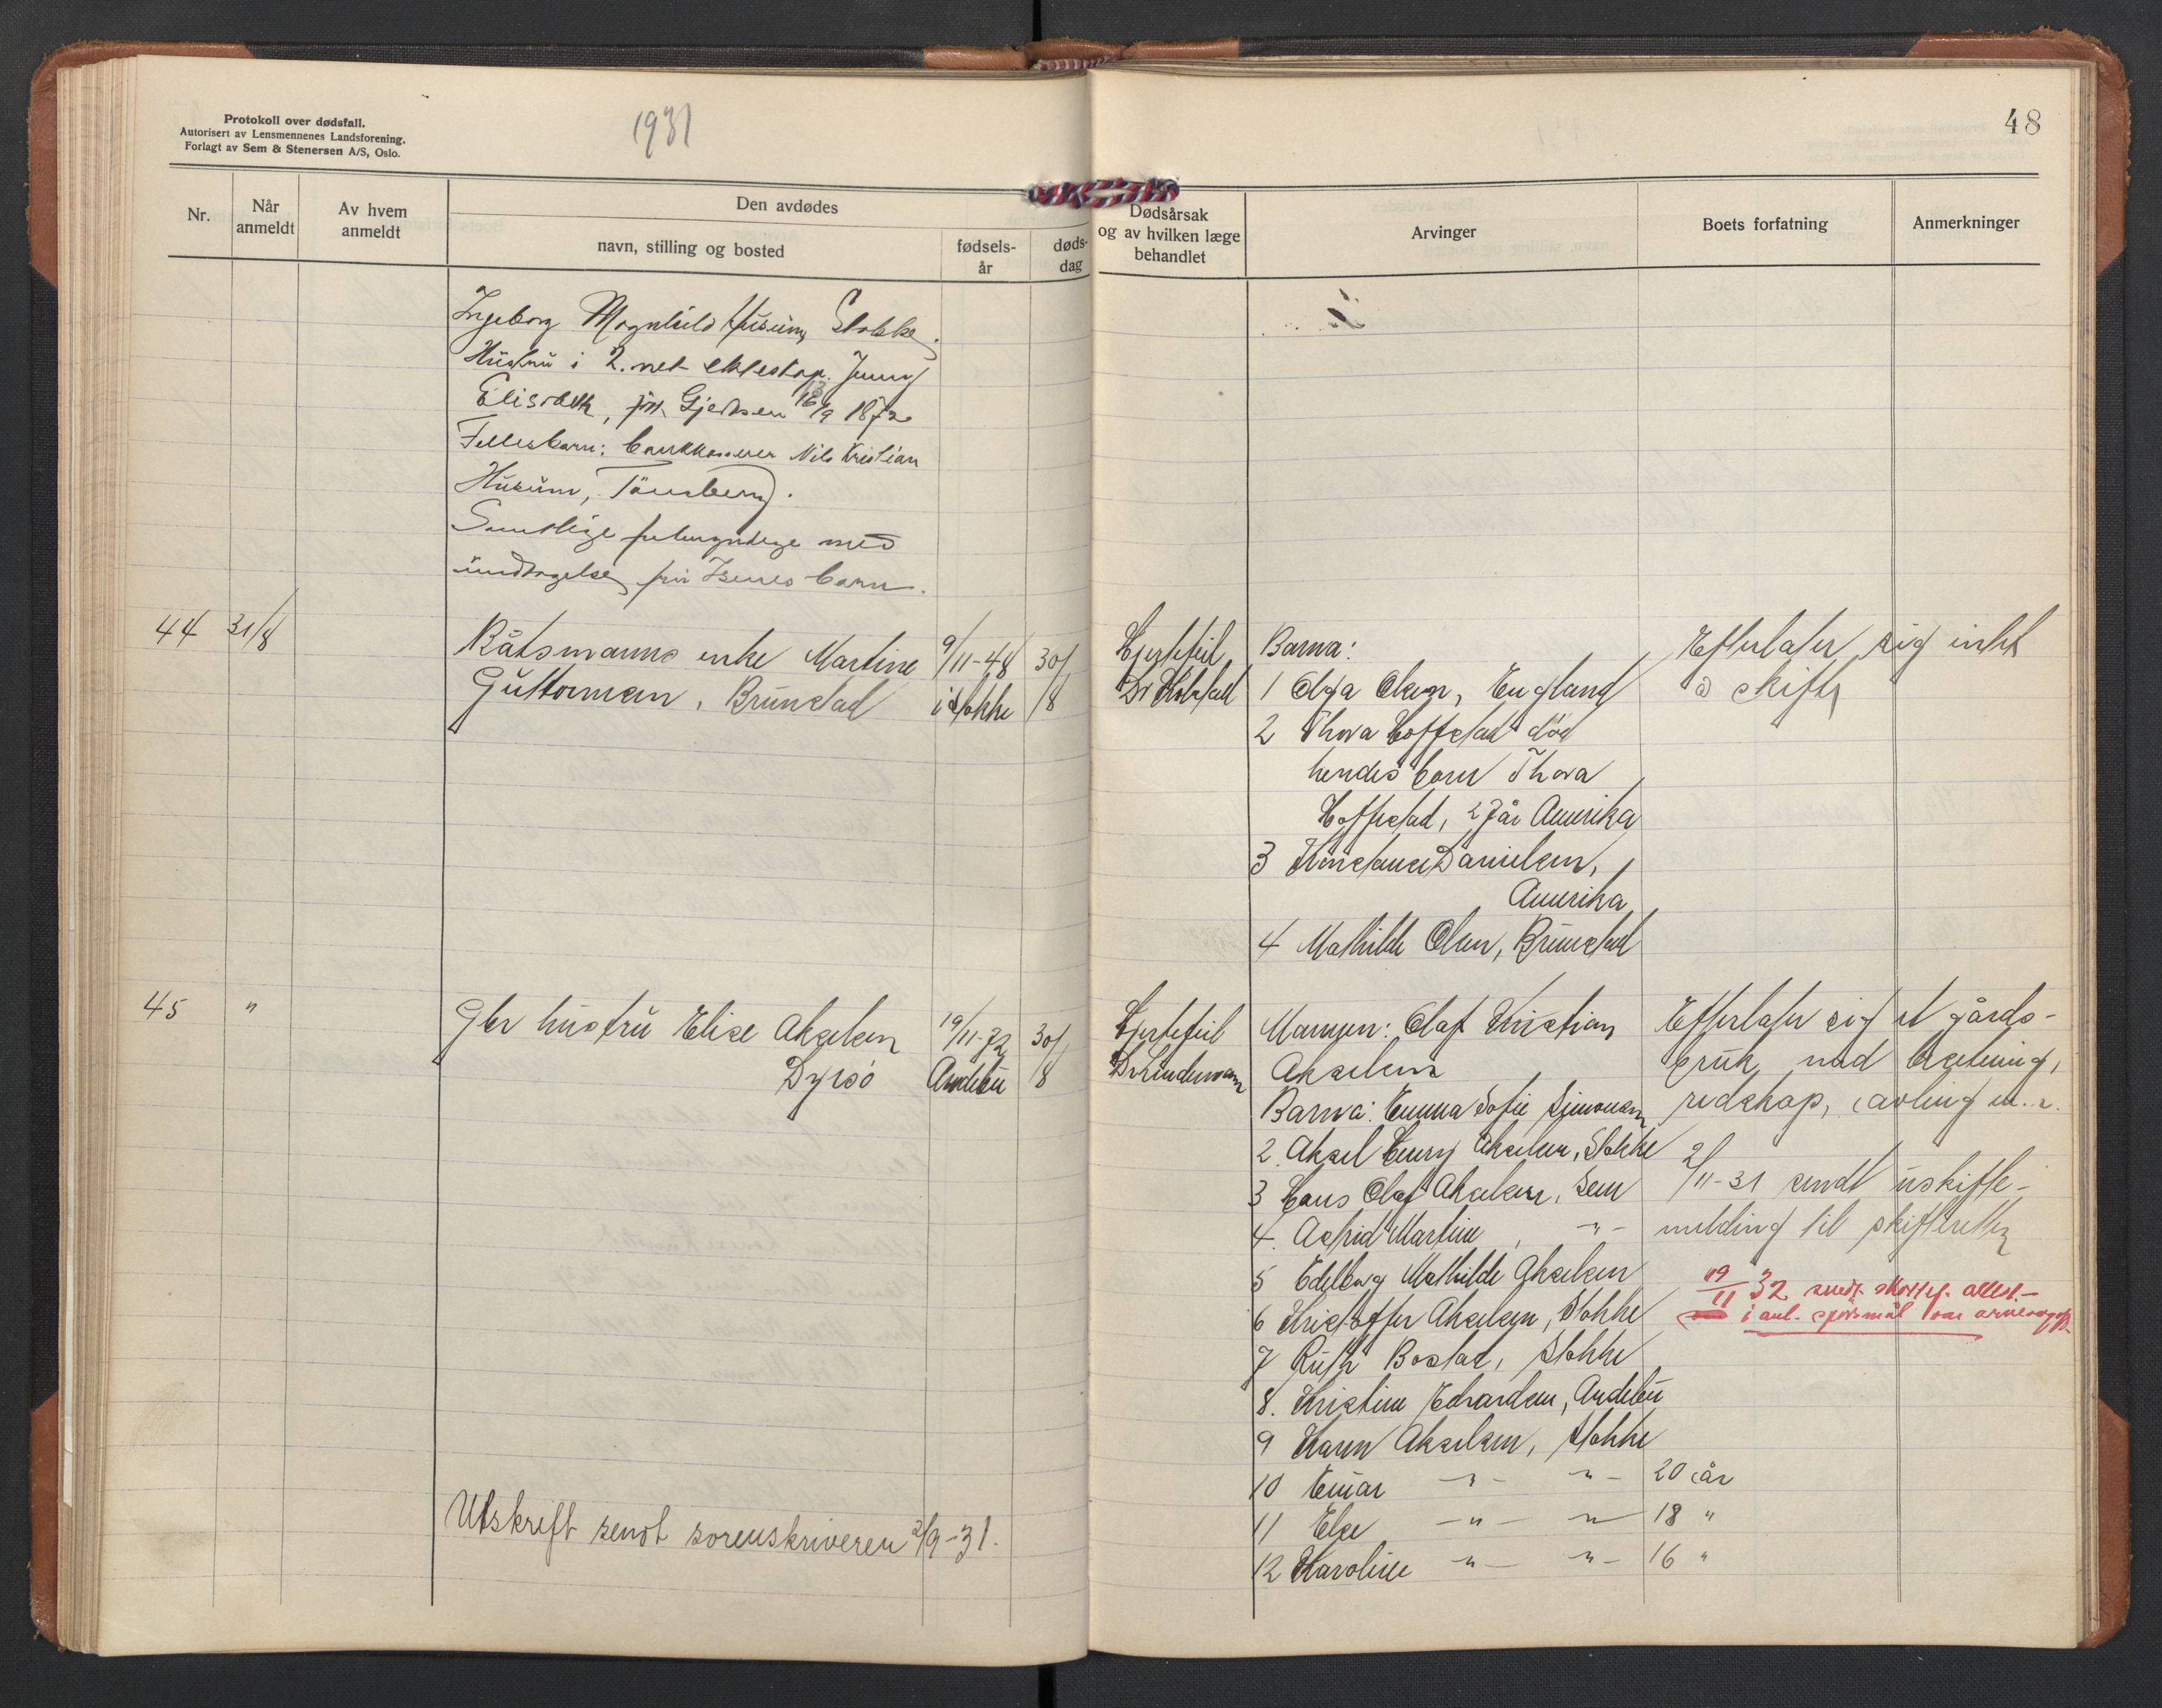 Protokoll over dødsfall.
Autorisert av Lensmennenes Landsforening.
Forlagt av Sem & Stenersen A/S, Oslo.
1931
48
Nr.
Når anmeldt
Av hvem anmeldt
Den avdødes
navn, stilling og bosted
fødselsår
dødsdag
Dødsårsak og av hvilken læge behandlet
Arvinger
Boets forfatning
Anmerkninger
Ingeborg Magnhild Husum, Stokke.
Hustru i 2. net ekteskap. Jenny
Elisabeth, født Gjertsen /9 1872
Fellesbarn: bankkasserer Nils Kristian
Husum, Tønsberg.
Samtlige fuldmyndige med
undtagelse for Irenes barn.
44 31/8
Båtsmanns enke Martine 9/11-48 30/
Guttormsen, Brunstad i Stokke /8
Hjertefeil
Dr Hotvedt
Barna:
1 Olga Olsen, England
2 Thora Hoffstad død
hendes barn Thora
Hoffstad, 27 år Amerika
3 Konstanse Danielsen,
Amerika
4 Mathilde Olsen, Brunstad
Efterlater sig intet
å skifte
45 "
Gbr hustru Elise Akselsen 19/11-72 30/
Dyrsø Andebu 8
Hjertefeil
Dr Lindemann
Mannen: Olaf Kristian
Akselsen
Barna: Emma Sofie Simonsen
2. Aksel Henry Akselsen, Stokke
3 Hans Olaf Akselsen, Sem
4. Astrid Martine , -"-
5 Edelborg Mathilde Akselsen
6 Kristoffer Akselsen, Stokke
7 Ruth Bostad, Stokke
8. Kristine Edvardsen, Andebu
9 Karen Akselsen, Stokke
10 Einar -"- -"- 20 år
11 Else -"- -"- 18 "
12 Karoline -"- -"- 16 "
Efterlater sig et gårds-
bruk med besetning,
redskap, avling m.v.
2/11-31 sendt uskifte-
melding til skifteretten
19/11 32 sendt attest.-
i anl. spørsmål om arveavgift.
Utskrift sendt sorenskriveren 2/9-31.